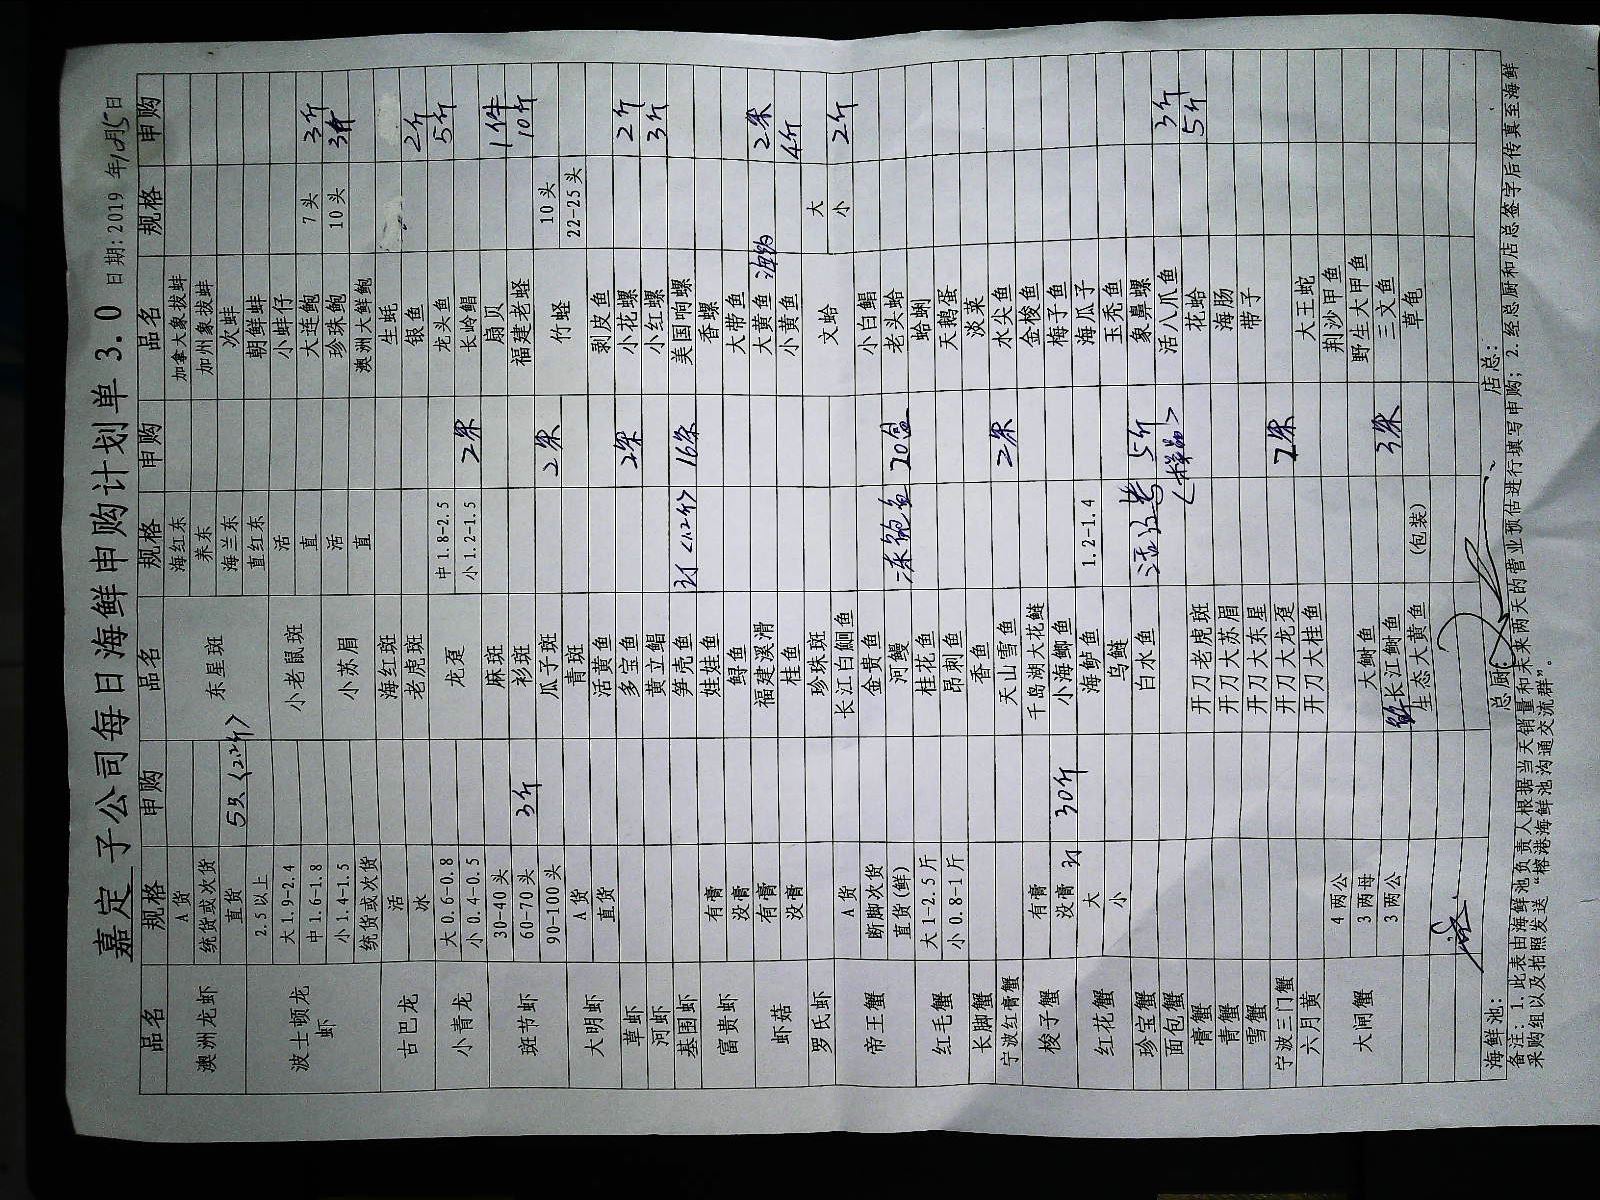 嘉定 子公司每日海鲜申购计划单 3.0 日期:2019 年12月5日
品名 规格 申购 品名 规格 申购 品名 规格 申购
澳洲龙虾 A货 东星斑 海红东 加拿大象拔蚌
统货或次货 养东 加州象拔蚌
直货 5只<2.2斤> 海兰东 次蚌
波士顿龙虾 2.5以上 直红东 朝鲜蚌
大1.9-2.4 小老鼠斑 活 小蚌仔
中1.6-1.8 直 大连鲍 7头 3斤
小1.4-1.5 小苏眉 活 珍珠鲍 10头 3斤
统货或次货 直 澳洲大鲜鲍
古巴龙 活 海红斑 生蚝
冰 老虎斑 银鱼 2斤
小青龙 大0.6-0.8 龙趸 中1.8-2.5 龙头鱼 5斤
小0.4-0.5 小1.2-1.5 2条 长岭鲳
斑节虾 30-40头 麻斑 扇贝 1件
60-70头 3斤 衫斑 福建老蛏 10斤
90-100头 瓜子斑 2条 竹蛏 10头
大明虾 A货 青斑 22-25头
直货 活黄鱼 剥皮鱼
草虾 多宝鱼 2条 小花螺 2斤
河虾 黄立鲳 小红螺 3斤
基围虾 笋壳鱼 <1.2斤> 16条 美国响螺
富贵虾 有膏 娃娃鱼 香螺
没膏 鲟鱼 大带鱼
虾菇 有膏 福建溪滑 大黄鱼 2条
没膏 桂鱼 小黄鱼 4斤
罗氏虾 珍珠斑 文蛤 大
帝王蟹 A货 长江白鮰鱼 小 2斤
断脚次货 金贵鱼 小白鲳
直货(鲜) 河鳗 冻鲍鱼 20盒 老头蛤
红毛蟹 大1-2.5斤 桂花鱼 蛤蜊
小0.8-1斤 昂刺鱼 天鹅蛋
长脚蟹 香鱼 淡菜
宁波红膏蟹 天山雪鱼 2条 水尖鱼
梭子蟹 有膏 千岛湖大花鲢 金梭鱼
没膏 30斤 小海鲫鱼 梅子鱼
红花蟹 大 海鲈鱼 1.2-1.4 海瓜子
小 乌鲢 玉秃鱼
珍宝蟹 白水鱼 5斤 象鼻螺
面包蟹 活八爪鱼 3斤
膏蟹 开刀老虎斑 花蛤 5斤
青蟹 开刀大苏眉 海肠
雪蟹 开刀大东星 带子
宁波三门蟹 开刀大龙趸 2条
六月黄 开刀大桂鱼 大王蛇
大闸蟹 4两公 荆沙甲鱼
3两母 大鲥鱼 野生大甲鱼
3两公 长江鲥鱼 3条 三文鱼
生态大黄鱼 (包装) 草龟
海鲜池: 总厨: 店总:
备注: 1.此表由海鲜池负责人根据当天销量和未来两天的营业预估进行填写申购; 2.经总厨和店总签字后传真至海鲜
采购组以及拍照发送“榕港海鲜池沟通交流群”。